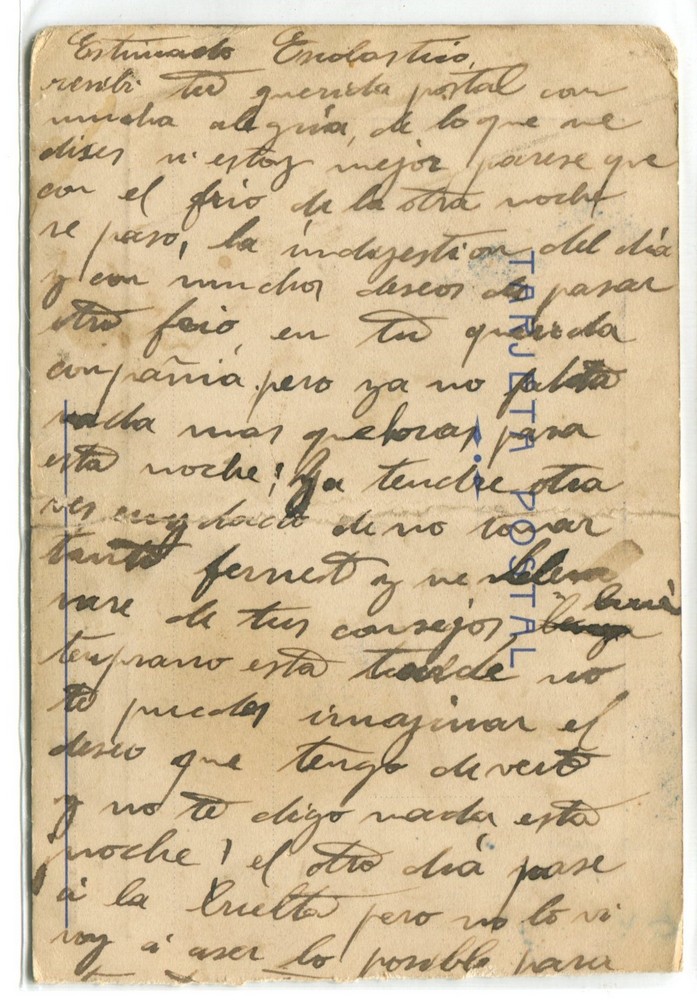 Estimado Escolastico,
resibi tu querida postal con
mucha alegria, de lo que me
dises si estoy mejor parese que
con el frio de la otra noche
se paso, la indigestion del dia
y con muchos deseos de pasar
otro frio, en tu querida
compañia. pero ya no falta
nada mas que horas para
esta noche! Ya tendre otra
ves cuydado de no tomar
tanto fernet y me lleva
vare de tus consejos,
temprano esta tarde no
te puedes imaginar el
deseo que tengo de verte
y no te digo nada esta
noche! el otro dia pase
á la buelta pero no lo vi
voy á aser lo posible para
TARJETA POSTAL